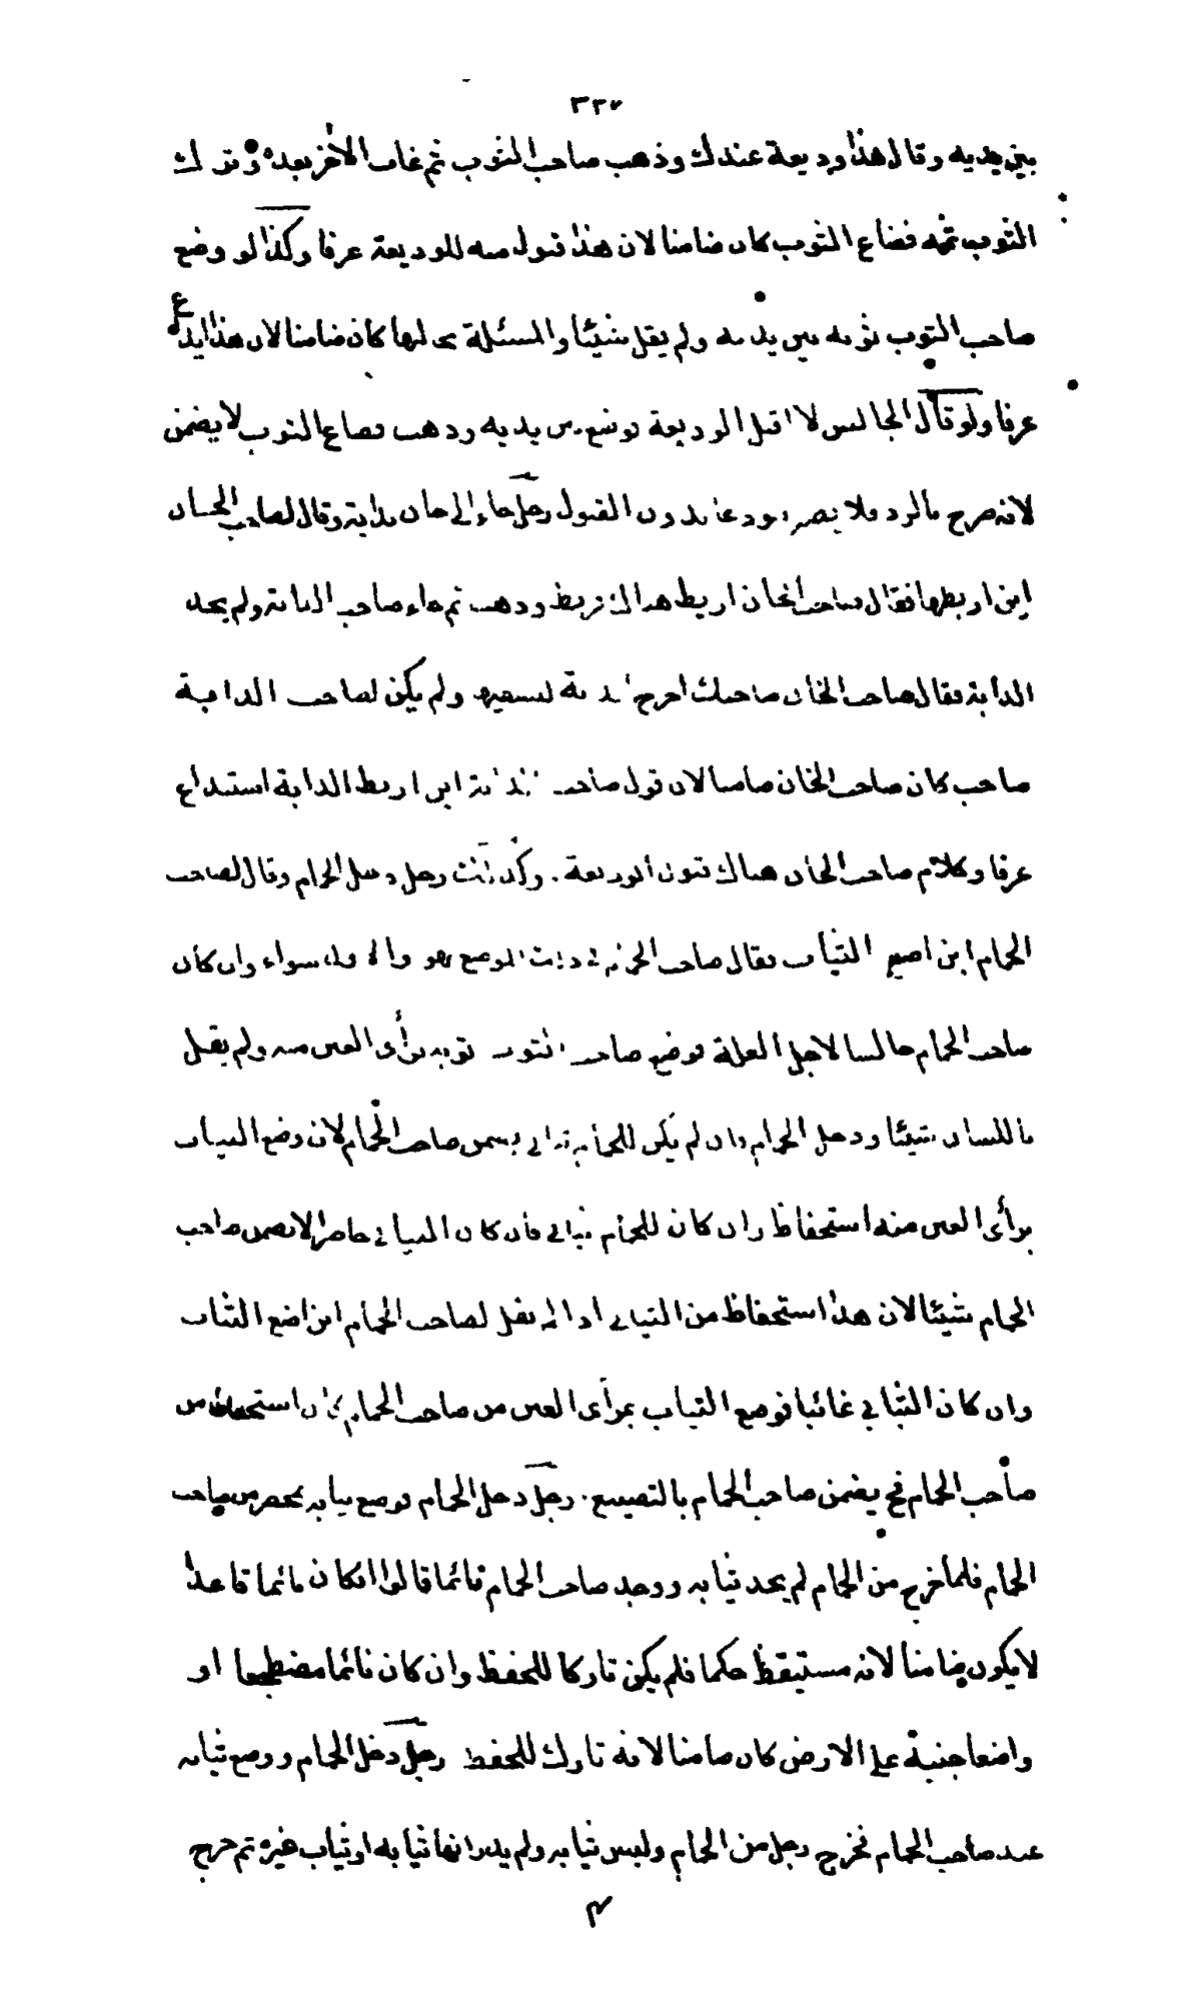 ٣٢٧
بين يديه وقال هذا وديعة عندك وذهب صاحب الثوب ثم غاب الآخر بعده وترك
الثوب ثمه فضاع الثوب كان ضامنا لان هذا قبول منه للوديعة عرفا وكذا لو وضع
صاحب الثوب ثوبه بين يديه ولم يقل شيئا والمسئلة بحالها كان ضامنا لان هذا ايداع
عرفا ولو قال الجالس لا اقبل الوديعة فوضع بين يديه وذهب فضاع الثوب لا يضمن
لانه صرح بالرد فلا يصير مودعا بدون القبول رجل جاء الى خان بدابة وقال لصاحب الخان
اين اربطها فقال صاحب الخان اربط هناك فربط وذهب ثم جاء صاحب الدابة ولم يجد
الدابة فقال صاحب الخان صاحبك اخرج الدابة ليسقيها ولم يكن لصاحب الدابة
صاحب كان صاحب الخان ضامنا لان قول صاحب الدابة اين اربط الدابة استيداع
عرفا وكلام صاحب الخان هناك قبول الوديعة . وكذلك رجل دخل الحمام وقال لصاحب
الحمام اين اضع الثياب فقال صاحب الحمام في ذلك الموضع فهو والاول سواء وان كان
صاحب الحمام جالسا لاجل الغلة فوضع صاحب الثوب ثوبه برأى العين منه ولم يقل
باللسان شيئا ودخل الحمام فان لم يكن للحمام ثيابي يضمن صاحب الحمام لان وضع الثياب
برأى العين منه استحفاظ وان كان للحمام ثيابي فان كان الثيابي حاضرا لا يضمن صاحب
الحمام شيئا لان هذا استحفاظ من الثيابي اذا لم يقل لصاحب الحمام اين اضع الثياب
وان كان الثيابي غائبا فوضع الثياب بمرأى العين من صاحب الحمام كان استحفاظا من
صاحب الحمام فح يضمن صاحب الحمام بالتضييع . رجل دخل الحمام فوضع ثيابه بمحضر من صاحب
الحمام فلما خرج من الحمام لم يجد ثيابه ووجد صاحب الحمام نائما قالوا ان كان نائما قاعدا
لا يكون ضامنا لانه مستيقظ حكما فلم يكن تاركا للحفظ وان كان نائما مضطجعا او
واضعا جنبه على الارض كان ضامنا لانه تارك للحفظ رجل دخل الحمام ووضع ثيابه
عند صاحب الحمام فخرج رجل من الحمام ولبس ثيابه ولم يدر انها ثيابه او ثياب غيره ثم خرج